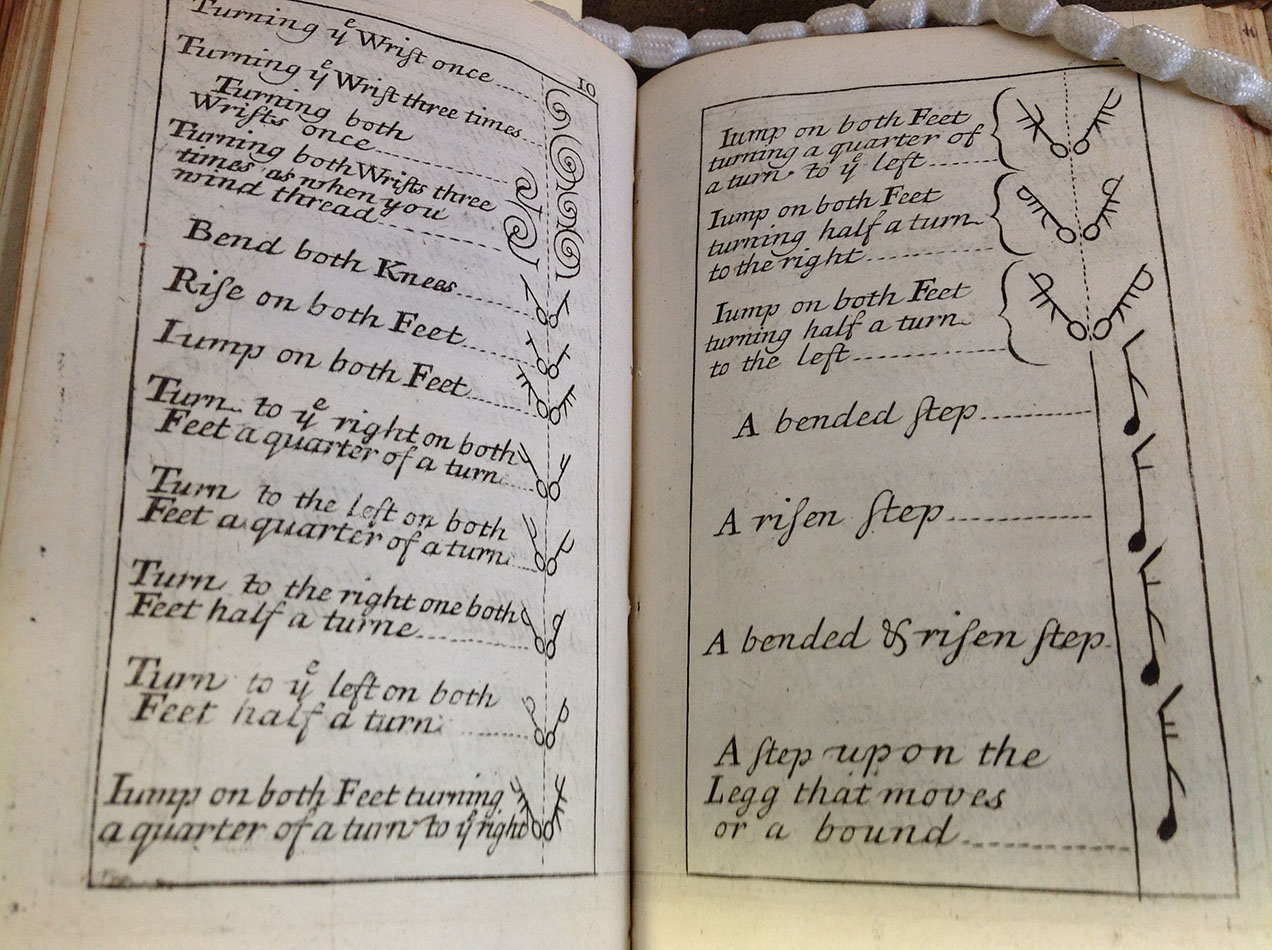 10
Turning yͤ Wriſt once
Turning yͤ Wriſt three times
Turning both
Wriſts once
Turning both Wriſts three
times as when you
wind thread
Bend both Knees
Riſe on both Feet
Iump on both Feet
Turn to yͤ right on both
Feet a quarter of a turn
Turn to the left on both
Feet a quarter of a turn
Turn to the right one both
Feet half a turne
Turn to yͤ left on both
Feet half a turn
Iump on both Feet turning
a quarter of a turn to yͤ right
Iump on both Feet
turning a quarter of
a turn to yͤ left
Iump on both Feet
turning half a turn
to the right
Iump on both Feet
turning half a turn
to the left
A bended ſtep
A riſen ſtep
A bended & riſen ſtep
A ſtep upon the
Legg that moves
or a bound